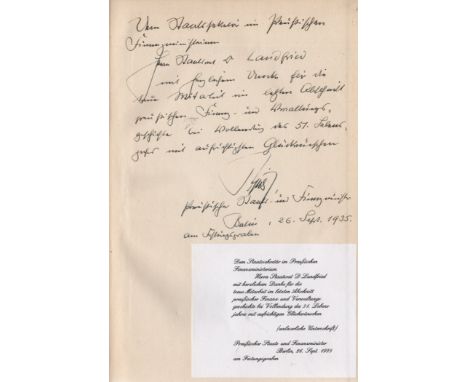 Dem Staatssekretär im Preußischen
Finanzministerium
Herrn Staatsrat D Landfried
mit herzlichem Danke für die
treue Mitarbeit im letzten Abschnitt
preußischer Finanz- und Verwaltungs-
geschichte bei Vollendung des 51. Lebens-
jahres mit aufrichtigen Glückwünschen
Preußischer Staats- und Finanzminister
Berlin, 26. Sept. 1935.
am Festungsgraben
Dem Staatssekretär im Preußischen
Finanzministerium
Herrn Staatsrat D. Landfried
mit herzlichem Danke für die
treue Mitarbeit im letzten Abschnitt
preußischer Finanz und Verwaltungs-
geschichte bei Vollendung des 51. Lebens-
jahres mit aufrichtigen Glückwünschen
(unleserliche Unterschrift)
Preußischer Staats und Finanzminister
Berlin, 26. Sept. 1935
am Festungsgraben